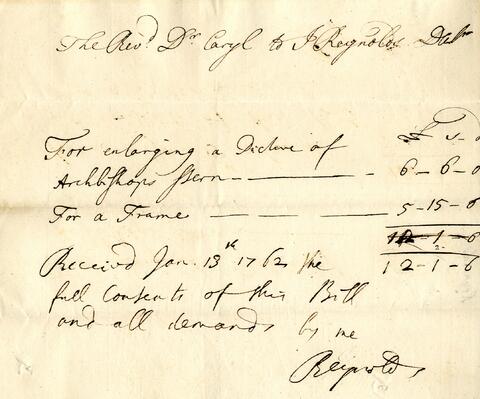 The Revd Dr Caryl to J Reynolds Dr
For enlarging a Picture of £ s d
Archbishops Stern — 6 - 6 - 0
For a Frame — 5 - 15 - 6
12 - 1 - 6
Received Jan. 13th 1762 the 12 - 1 - 6
full Contents of this Bill
and all demands by me
JReynolds